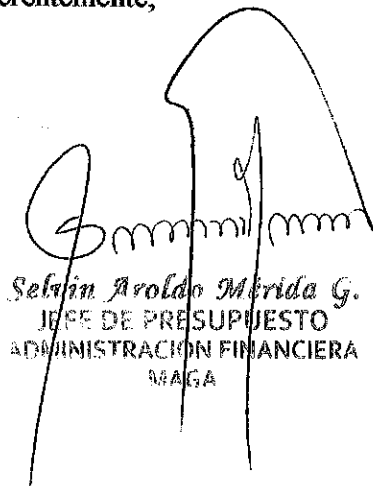 Selvin Aroldo Mérida G.
JEFE DE PRESUPUESTO
ADMINISTRACIÓN FINANCIERA
MAGA